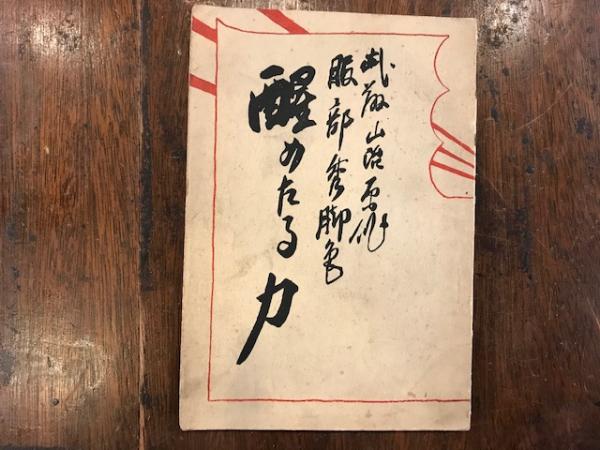 武藤山治原作
服部秀脚色
醒めたる力